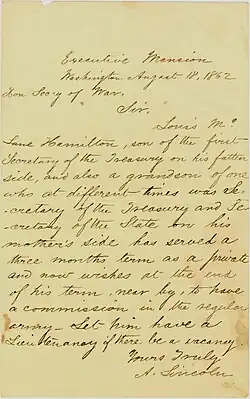 Executive Mansion
Washington August 18, 1862
Hon Secy of War.
Sir.
Louis Mc
Lane Hamilton, son of the first
Secretary of the Treasury on his father
side, and also a grandson of one
who at different times was Se-
-cretary of the Treasury and Se-
-cretary of the State on his
mother's side has served a
three months term as a private
and now wishes at the end
of his term, near by, to have
a commission in the regular
army - Let him have a
Lieutenancy if there be a vacancy
Yours Truly
A. Lincoln